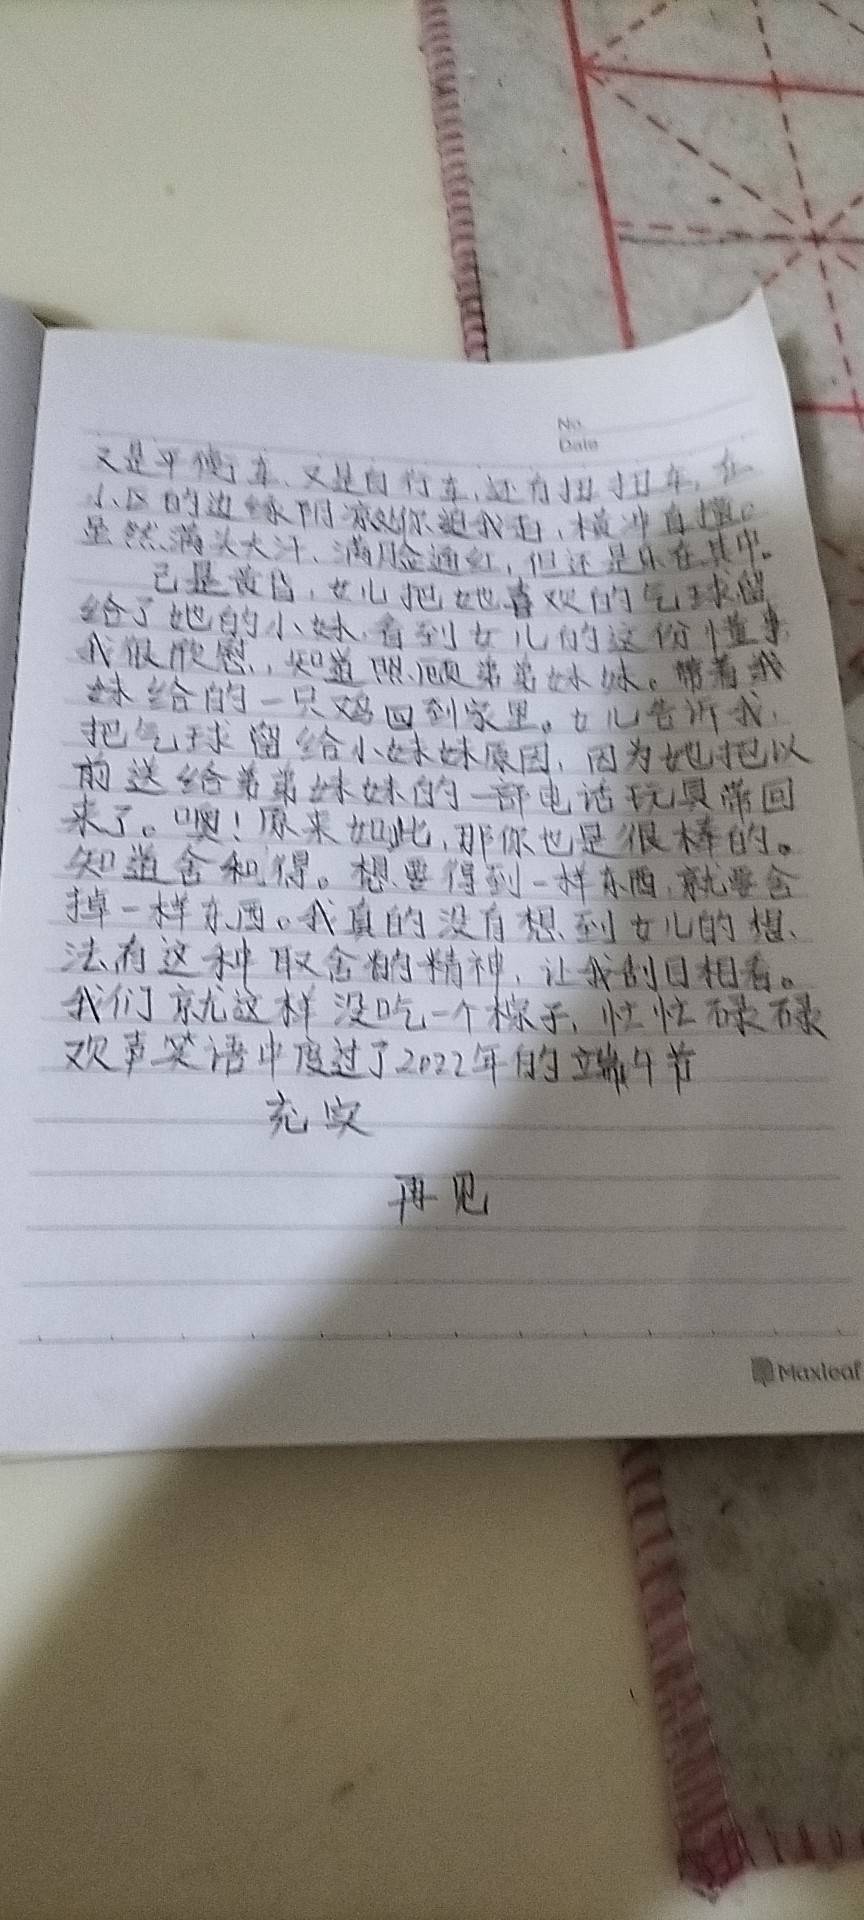 No.
Date
又是平衡车、又是自行车,还有扭扭车,在
小区的边缘阴凉处你追我赶,横冲直撞。
虽然满头大汗、满脸通红,但还是乐在其中。
已是黄昏,女儿把她喜欢的气球留
给了她的小妹,看到女儿的这份懂事
我很欣慰,知道照顾弟弟妹妹。带着我
妹给的一只鸡回到家里。女儿告诉我,
把气球留给小妹妹原因,因为她把以
前送给弟弟妹妹的一部电话玩具带回
来了。噢!原来如此,那你也是很棒的。
知道舍和得。想要得到一样东西,就要舍
掉一样东西。我真的没有想到女儿的想
法有这种取舍的精神,让我刮目相看。
我们就这样没吃一个粽子,忙忙碌碌
欢声笑语中度过了2022年的端午节
充实
再见
Maxleaf